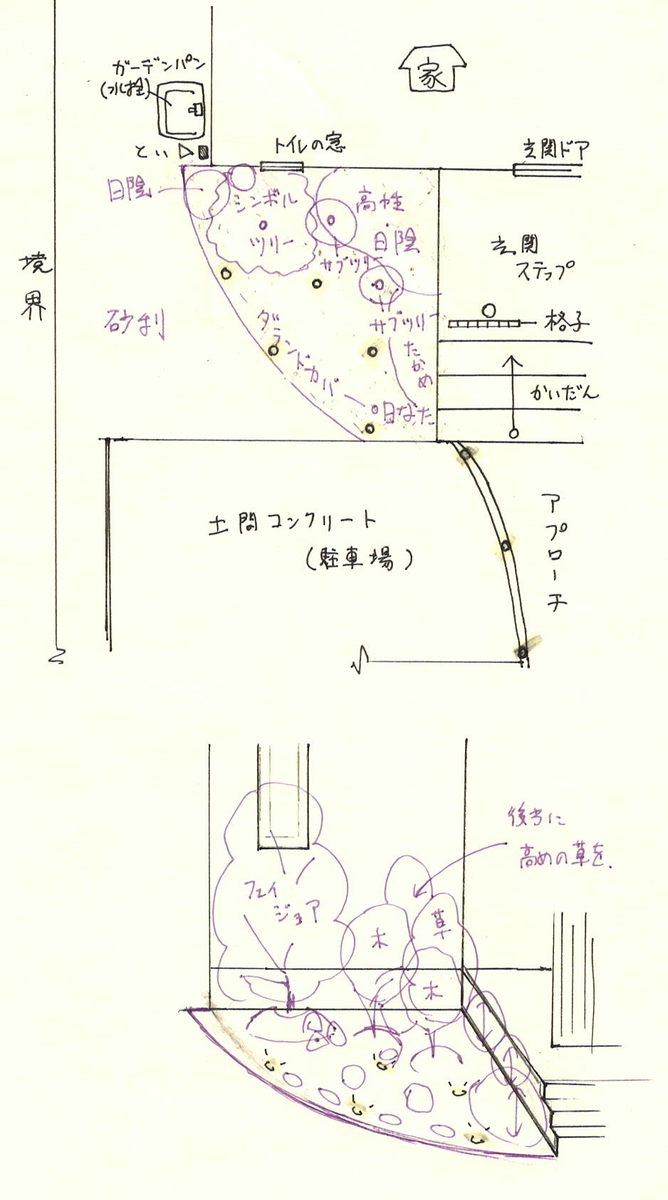 家
ガーデンパン
(水栓)
とい
トイレの窓
玄関ドア
日陰
シンボル
ツリー
高性
日陰
サブツリー
玄関
ステップ
境界
砂利
サブツリー
格子
たかめ
かいだん
グランドカバー
日なた
土間コンクリート
(駐車場)
アプローチ
後方に
高めの草を.
フェイ
ジョア
木
草
木